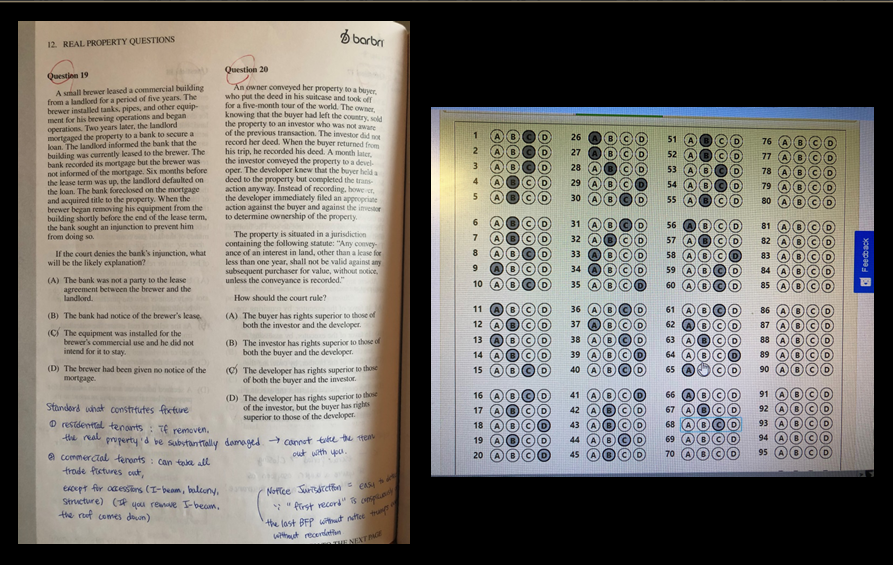 12. REAL PROPERTY QUESTIONS
barbri
Question 19
A small brewer leased a commercial building
from a landlord for a period of five years. The
brewer installed tanks, pipes, and other equip-
ment for his brewing operations and began
operations. Two years later, the landlord
mortgaged the property to a bank to secure a
loan. The landlord informed the bank that the
building was currently leased to the brewer. The
bank recorded its mortgage but the brewer was
not informed of the mortgage. Six months before
the lease term was up, the landlord defaulted on
the loan. The bank foreclosed on the mortgage
and acquired title to the property. When the
brewer began removing his equipment from the
building shortly before the end of the lease term,
the bank sought an injunction to prevent him
from doing so.
If the court denies the bank's injunction, what
will be the likely explanation?
(A) The bank was not a party to the lease
agreement between the brewer and the
landlord.
(B) The bank had notice of the brewer's lease.
(C) The equipment was installed for the
brewer's commercial use and he did not
intend for it to stay.
(D) The brewer had been given no notice of the
mortgage.
Standard what constitutes fixture
① residential tenants : if removen,
the real property'd be substantially damaged → cannot take the item
out with you.
② commercial tenants : can take all
trade fixtures out,
except for accessions (I-beam, balcony,
structure) (If you remove I-beam,
the roof comes down)
Question 20
An owner conveyed her property to a buyer,
who put the deed in his suitcase and took off
for a five-month tour of the world. The owner,
knowing that the buyer had left the country, sold
the property to an investor who was not aware
of the previous transaction. The investor did not
record her deed. When the buyer returned from
his trip, he recorded his deed. A month later,
the investor conveyed the property to a devel-
oper. The developer knew that the buyer held a
deed to the property but completed the trans-
action anyway. Instead of recording, however,
the developer immediately filed an appropriate
action against the buyer and against the investor
to determine ownership of the property.
The property is situated in a jurisdiction
containing the following statute: "Any convey-
ance of an interest in land, other than a lease for
less than one year, shall not be valid against any
subsequent purchaser for value, without notice,
unless the conveyance is recorded."
How should the court rule?
(A) The buyer has rights superior to those of
both the investor and the developer.
(B) The investor has rights superior to those of
both the buyer and the developer.
(C) The developer has rights superior to those
of both the buyer and the investor.
(D) The developer has rights superior to those
of the investor, but the buyer has rights
superior to those of the developer.
Notice Jurisdiction = easy to
∵ "first record" is
the last BFP without notice
without recordation
THE NEXT PAGE
1 A B C D 26 A B C D 51 A B C D 76 A B C D
2 A B C D 27 A B C D 52 A B C D 77 A B C D
3 A B C D 28 A B C D 53 A B C D 78 A B C D
4 A B C D 29 A B C D 54 A B C D 79 A B C D
5 A B C D 30 A B C D 55 A B C D 80 A B C D
6 A B C D 31 A B C D 56 A B C D 81 A B C D
7 A B C D 32 A B C D 57 A B C D 82 A B C D
8 A B C D 33 A B C D 58 A B C D 83 A B C D
9 A B C D 34 A B C D 59 A B C D 84 A B C D
10 A B C D 35 A B C D 60 A B C D 85 A B C D
11 A B C D 36 A B C D 61 A B C D 86 A B C D
12 A B C D 37 A B C D 62 A B C D 87 A B C D
13 A B C D 38 A B C D 63 A B C D 88 A B C D
14 A B C D 39 A B C D 64 A B C D 89 A B C D
15 A B C D 40 A B C D 65 A C D 90 A B C D
16 A B C D 41 A B C D 66 A B C D 91 A B C D
17 A B C D 42 A B C D 67 A B C D 92 A B C D
18 A B C D 43 A B C D 68 A B C D 93 A B C D
19 A B C D 44 A B C D 69 A B C D 94 A B C D
20 A B C D 45 A B C D 70 A B C D 95 A B C D
Feedback